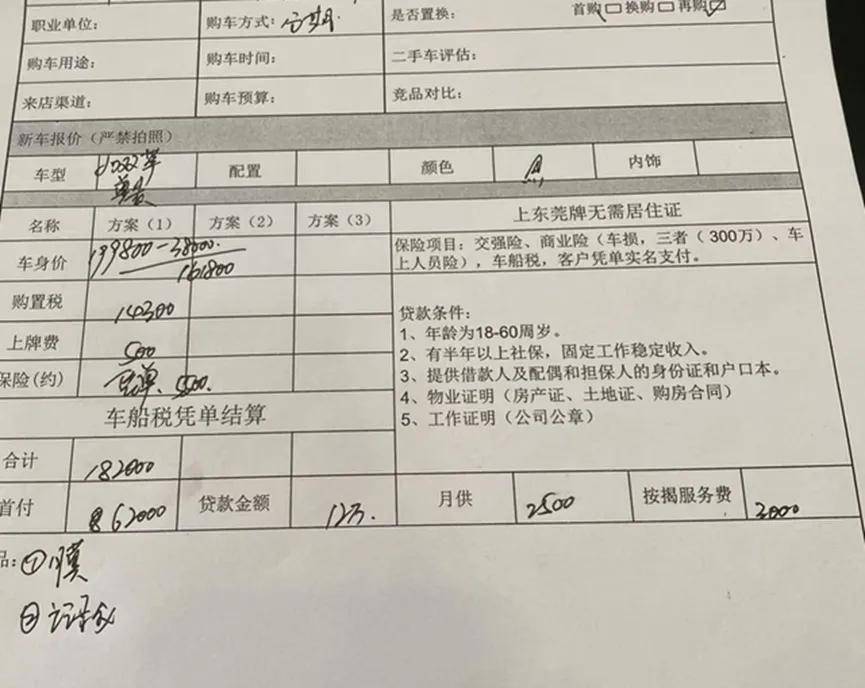 职业单位: 购车方式: 分期. 是否置换: 首购 换购 再购
购车用途: 购车时间: 二手车评估:
来店渠道: 购车预算: 竞品对比:
新车报价（严禁拍照）
车型 配置 颜色 黑 内饰
名称 方案（1） 方案（2） 方案（3） 上东莞牌无需居住证
车身价 199800-38000.
161800
保险项目：交强险、商业险（车损，三者（300万）、车
上人员险），车船税，客户凭单实名支付。
购置税 14300
上牌费 500
保险(约) 凭单. 5500.
车船税凭单结算
贷款条件:
1、年龄为18-60周岁。
2、有半年以上社保，固定工作稳定收入。
3、提供借款人及配偶和担保人的身份证和户口本。
4、物业证明（房产证、土地证、购房合同）
5、工作证明（公司公章）
合计 182000
首付 62000 贷款金额 12万. 月供 2500 按揭服务费 3000
品: ①膜
②记录仪